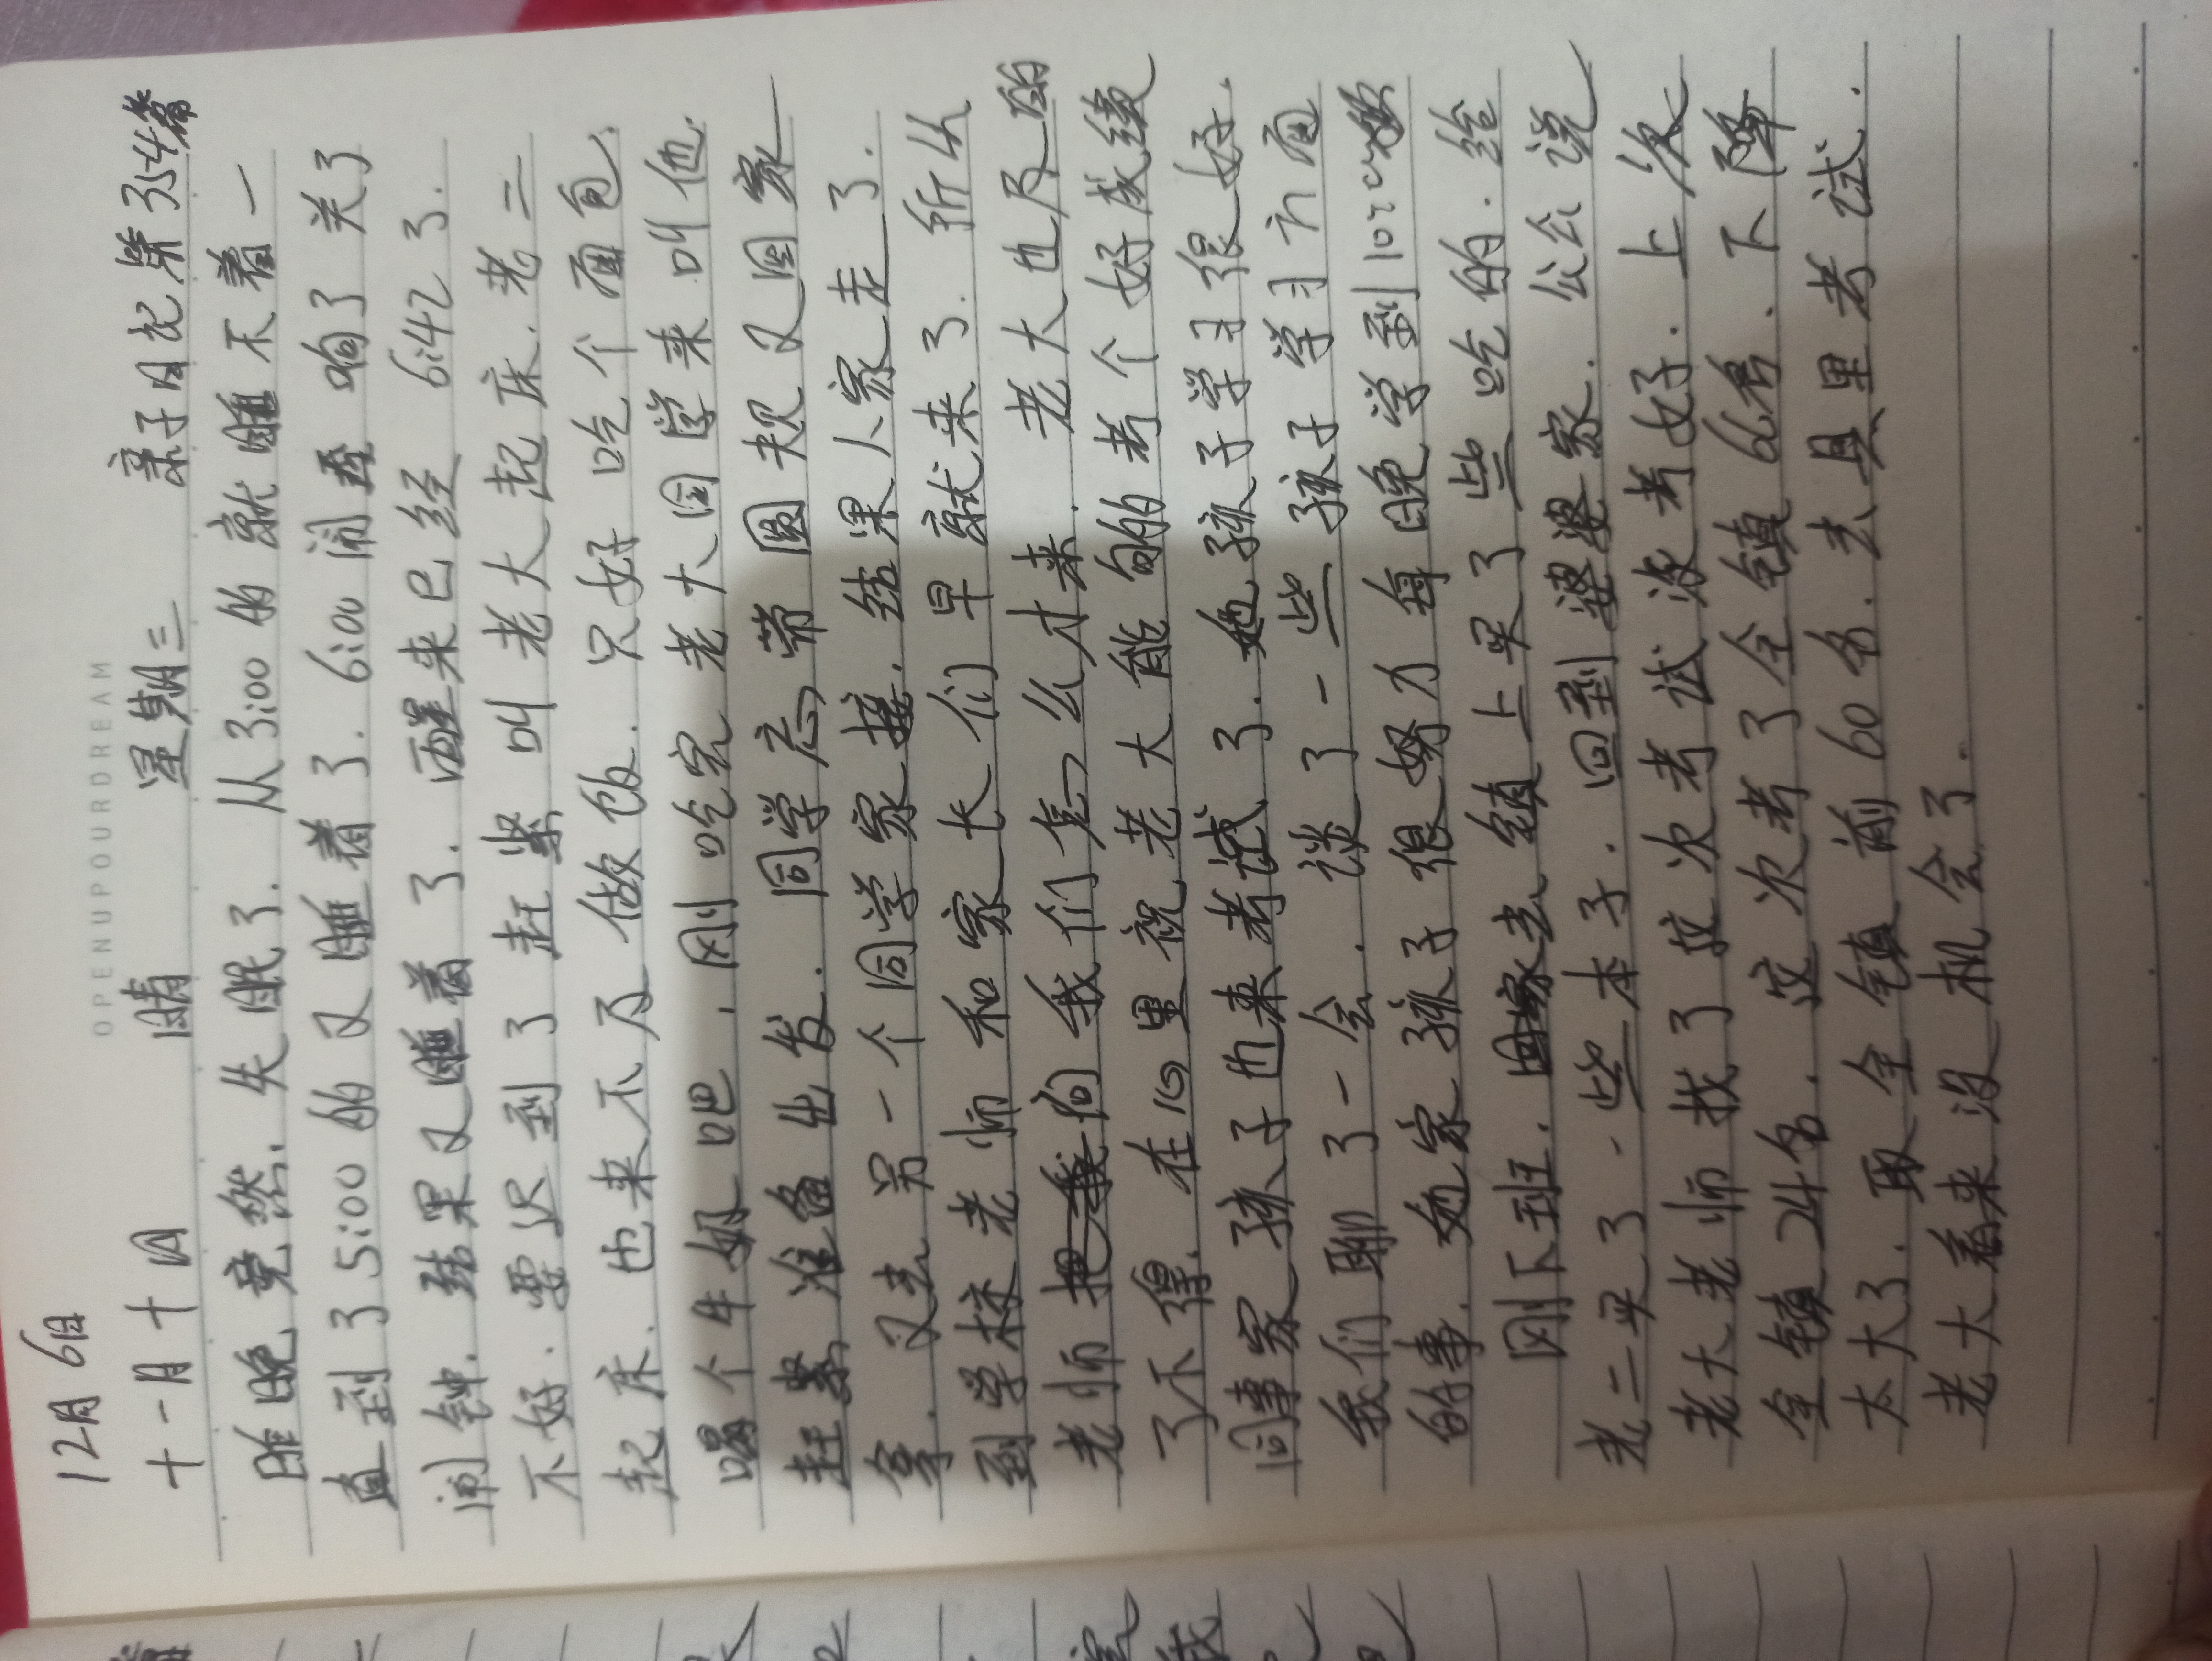 12月6日
OPENUPOURDREAM
十一月十四 晴 星期三 亲子日记第354篇
昨晚竟然.失眠了.从3:00的就睡不着一
直到了5:00的又睡着了.6:00闹
闹钟.结果又睡着了.醒来已经6:42了.
不好.要迟到了赶紧叫老大起床.老二
起床.也来不及做饭.只好吃个面包.
喝个牛奶吧.刚吃完老大同学来叫他.
赶紧准备出发.同学忘带圆规又回家
拿.又去另一个同学家接.结果人家走了.
到学校老师和家长们早就来了.所以
老师问我们怎么才来.老大也尽的
了不得.在心里祝老大能的考个好成绩
同事家孩子也来考试了.她孩子学习很好.
我们聊了一会.谈了一些孩子学习方面
的事.她家孩子很努力每晚学到10:00
刚下班.去镇上买了些吃的.给
老二买了一些本子.回到婆婆家.公公说
老大老师找了这次考试没考好.上次
全镇24名.这次考了全镇66名.下降
太大了.取全镇前60名.去县里考试.
老大看来没机会了.